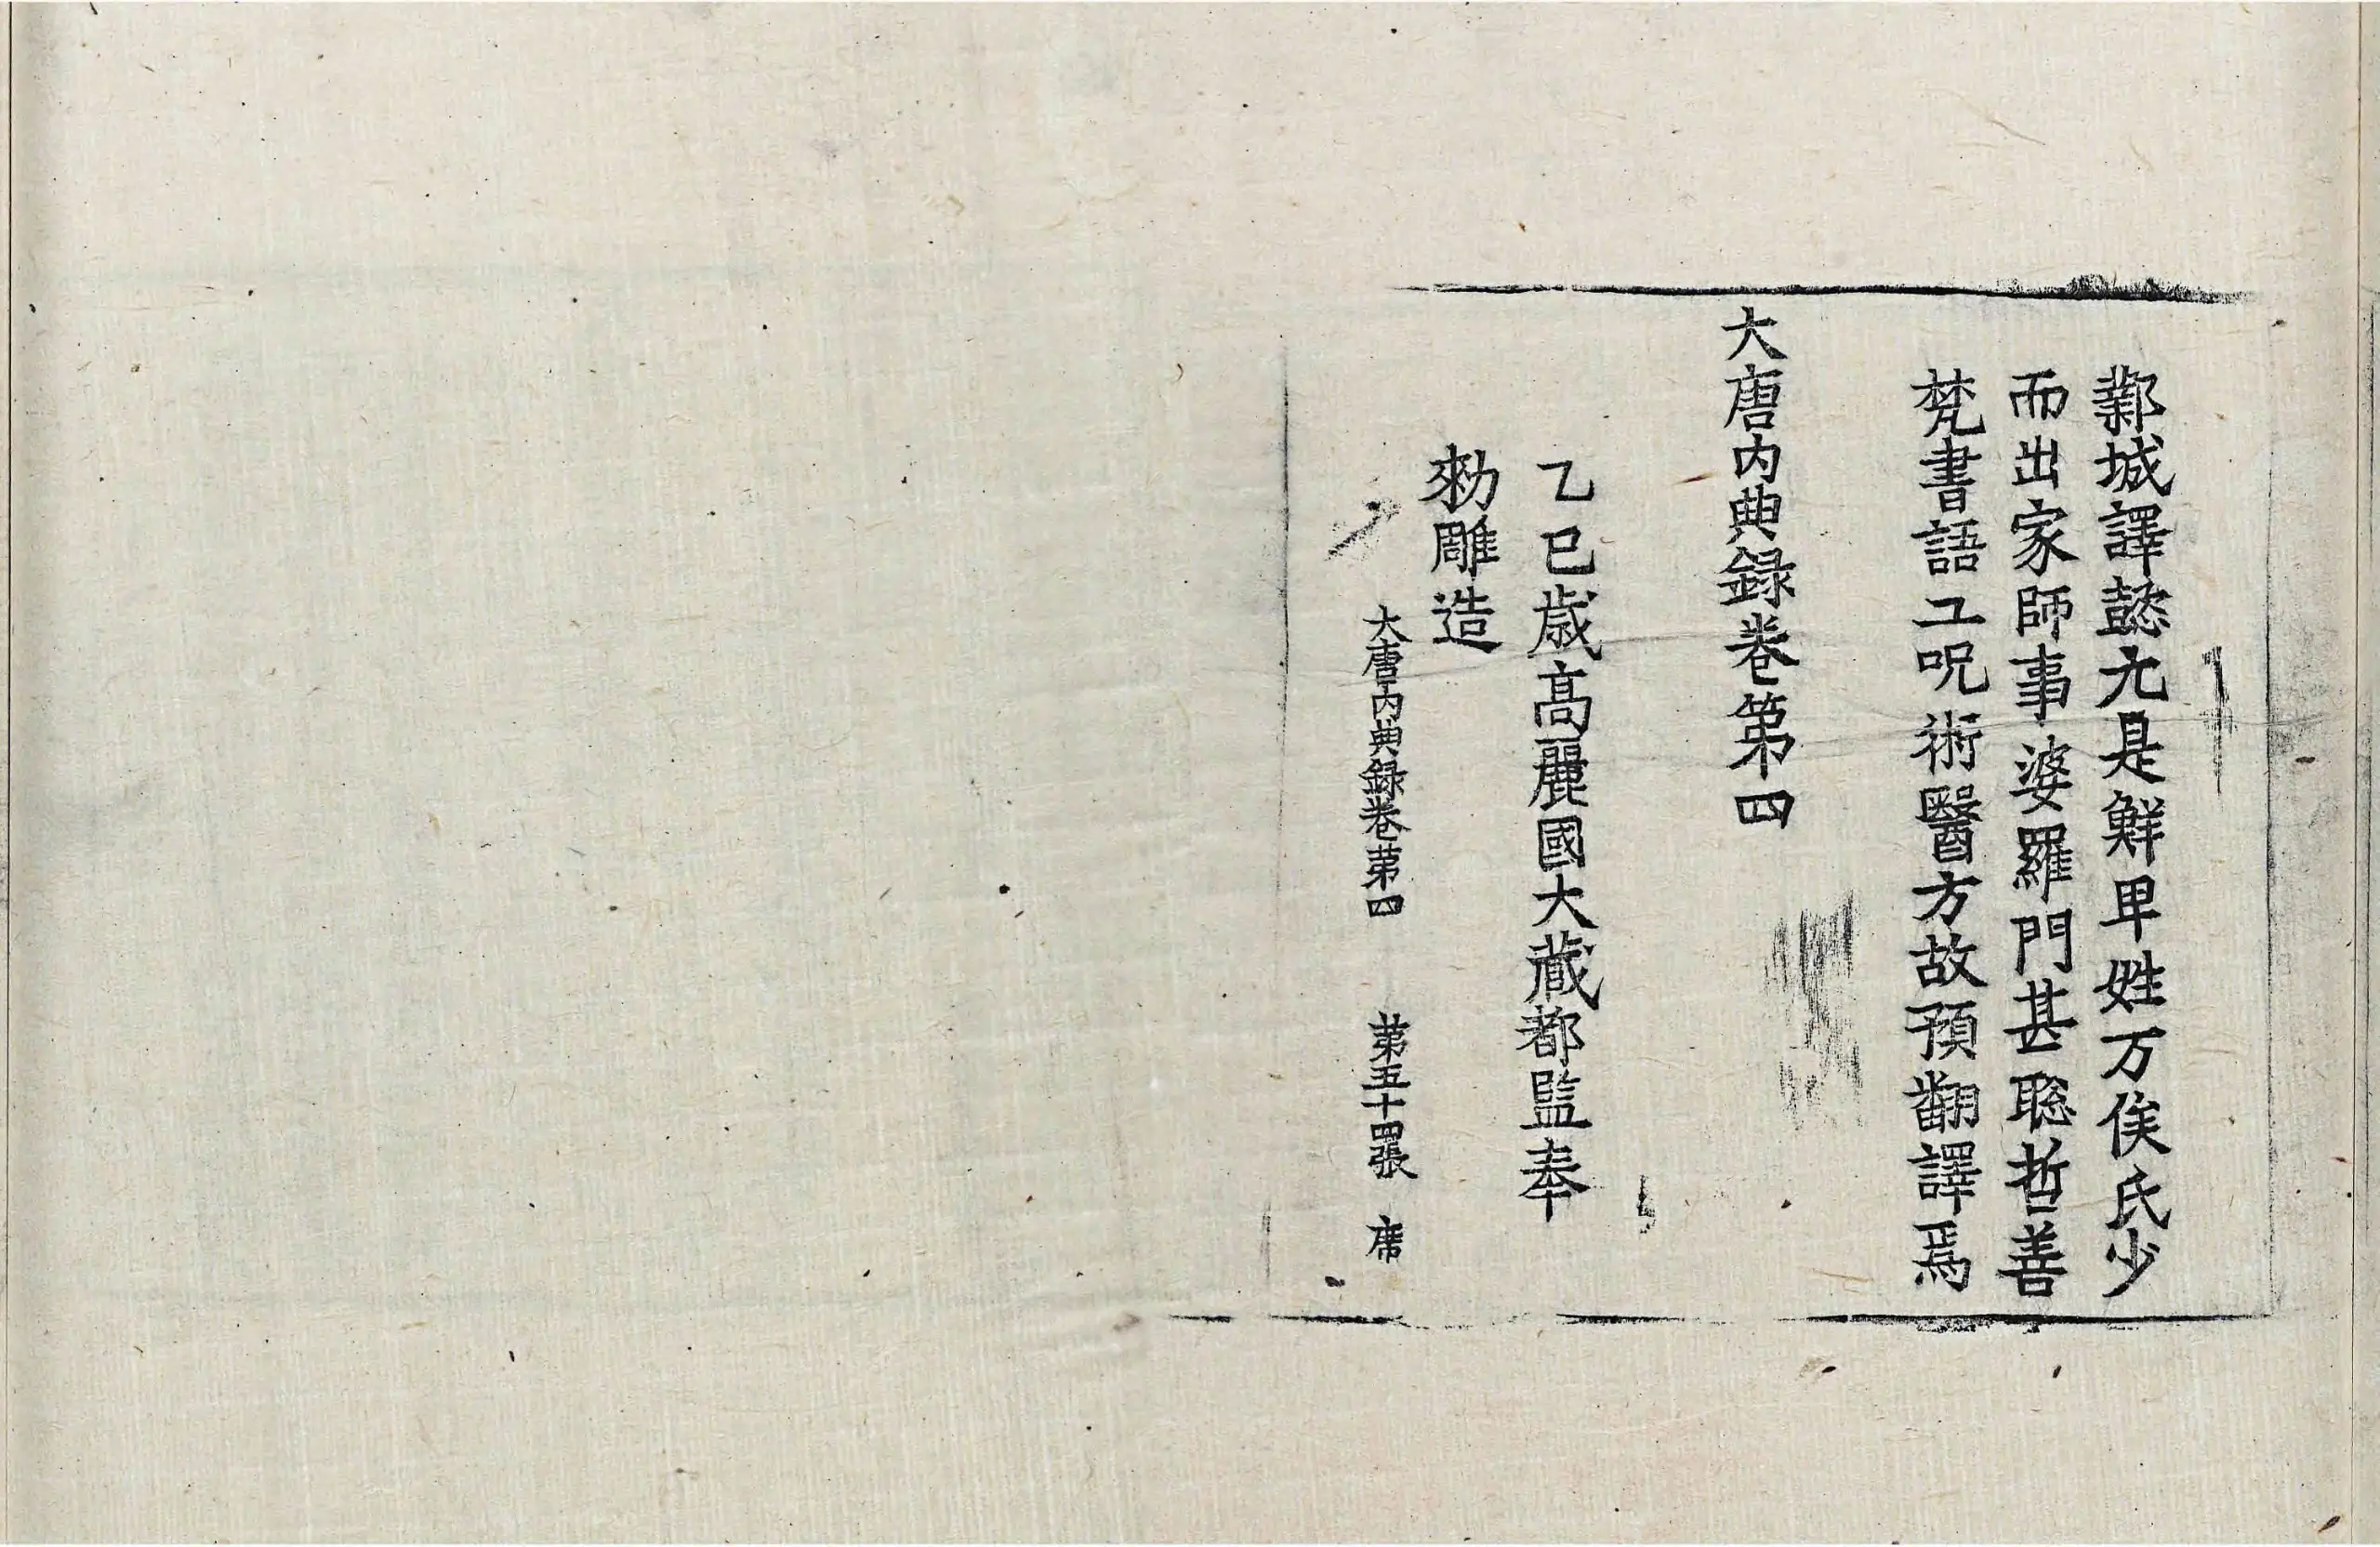 鄴城譯懿元是鮮卑姓万俟氏少
而出家師事婆羅門甚聡哲善
梵書語工呪術醫方故預翻譯焉
大唐内典録卷第四
乙巳歳高麗國大藏都監奉
勑雕造
大唐内典録卷苐四 苐五十四張 席